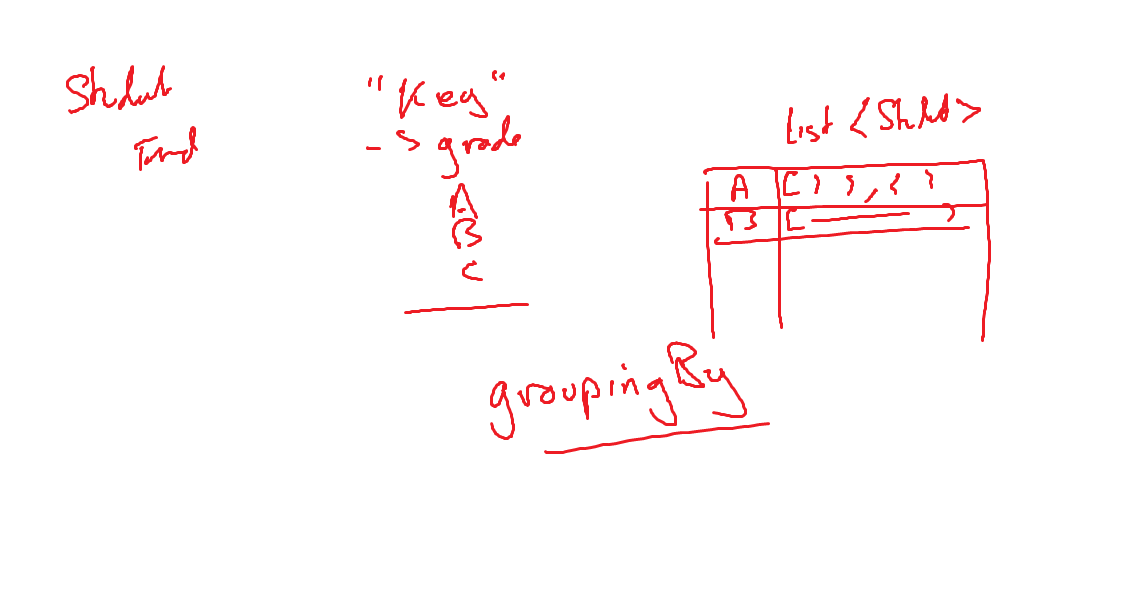 Student
"Key"
-> grade
A
B
C
List <Student>
A [{ }, { }
B [ ]
groupingBy